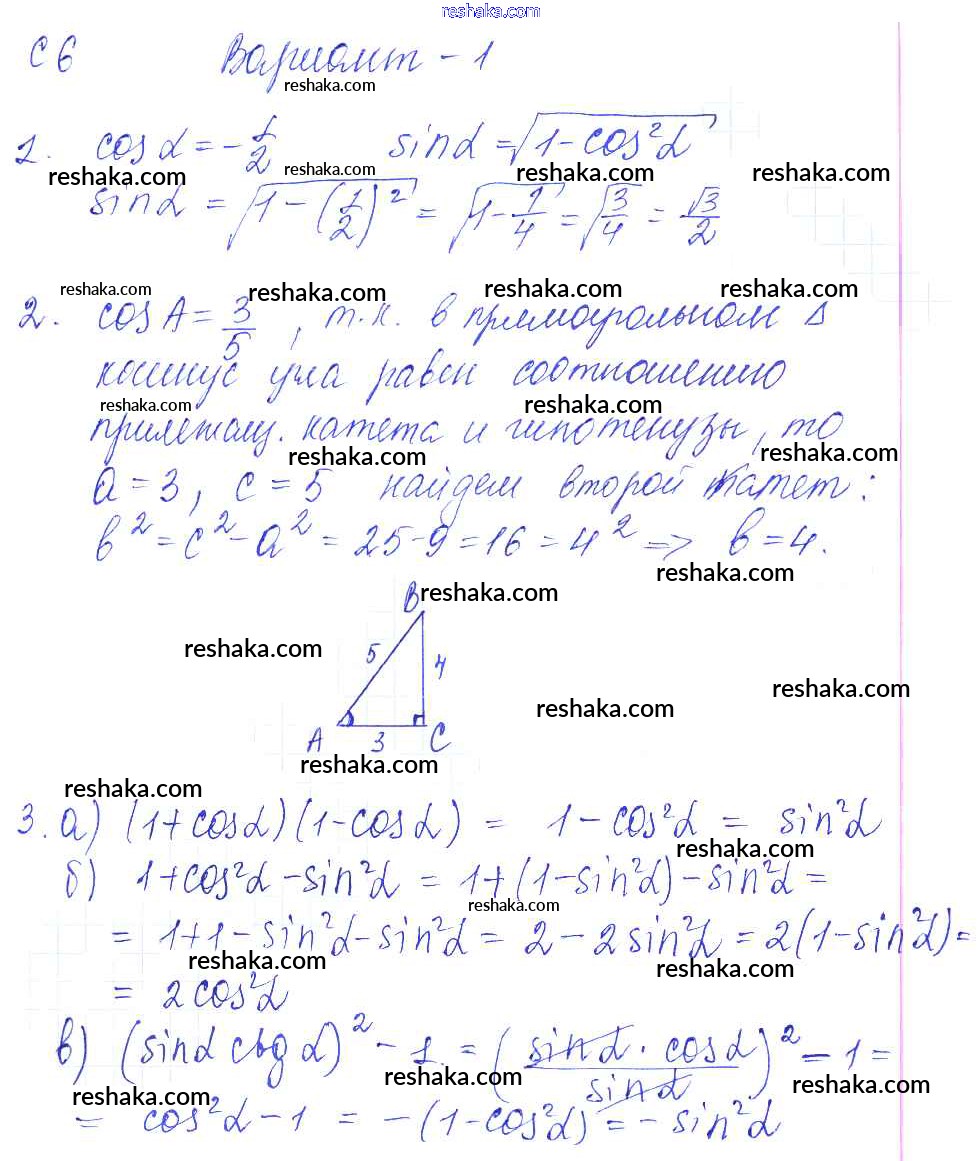 reshaka.com
С 6 Вариант - 1
reshaka.com
1. cos α = - 1/2 sin α = √(1 - cos²α)
reshaka.com reshaka.com reshaka.com reshaka.com
sin α = √(1 - (1/2)²) = √(1 - 1/4) = √(3/4) = √3/2
reshaka.com reshaka.com reshaka.com reshaka.com
2. cos A = 3/5, т.к. в прямоугольном Δ
косинус угла равен соотношению
reshaka.com reshaka.com
прилежащ. катета и гипотенузы, то
reshaka.com reshaka.com
a = 3, c = 5 найдем второй катет:
в² = c² - a² = 25 - 9 = 16 = 4² => в = 4.
reshaka.com
B reshaka.com
reshaka.com 5 4
reshaka.com reshaka.com
A 3 C
reshaka.com
reshaka.com
3. а) (1 + cos α)(1 - cos α) = 1 - cos²α = sin²α
reshaka.com
б) 1 + cos²α - sin²α = 1 + (1 - sin²α) - sin²α =
reshaka.com
= 1 + 1 - sin²α - sin²α = 2 - 2 sin²α = 2(1 - sin²α) =
reshaka.com reshaka.com
= 2 cos²α
в) (sin α ctg α)² - 1 = (sin α · cos α / sin α)² - 1 =
reshaka.com reshaka.com reshaka.com
= cos²α - 1 = -(1 - cos²α) = - sin²α